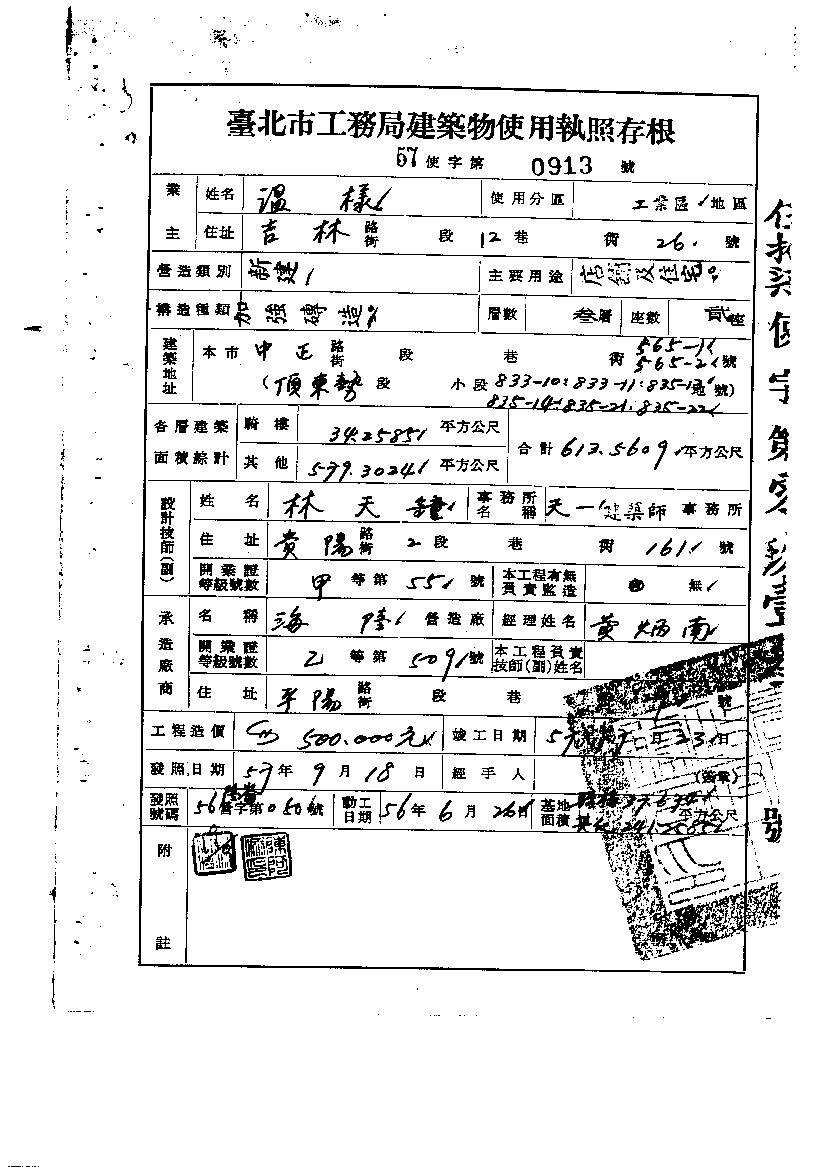 臺北市工務局建築物使用執照存根
57使字第 0913 號
業主 姓名 溫 樣 使用分區 工業區 地區
住址 吉林 路街 段 12巷 街 26. 號
營造類別 新建 主要用途 店鋪及住宅
構造種類 加強磚造 層數 參層 座數 貳座
建築地址 本市 中正 路街 段 巷 街 565-1 565-2 號
(頂東勢 段 小段 833-10:833-11:835-13 地號)
835-14:835-21:835-22
各層建築面積綜計 騎樓 34.2585 平方公尺 合計 613.5609 平方公尺
其他 579.3024 平方公尺
設計技師(副) 姓名 林天 事務所名稱 天一建築師 事務所
住址 貴陽 路街 2段 巷 街 161 號
開業證等級號數 甲 等第 55 號 本工程有無負責監造 無
承造廠商 名稱 海陸 營造廠 經理姓名 黃炳南
開業證等級號數 乙 等第 509 號 本工程負責技師(副)姓名
住址 平陽 路街 段 巷 號
工程造價 500.000元 竣工日期 月 23日
發照日期 57年9月18日 經手人 (簽章)
發照號碼 56 營字第 050 號 動工日期 56年6月26日 基地面積 平方公尺
附註